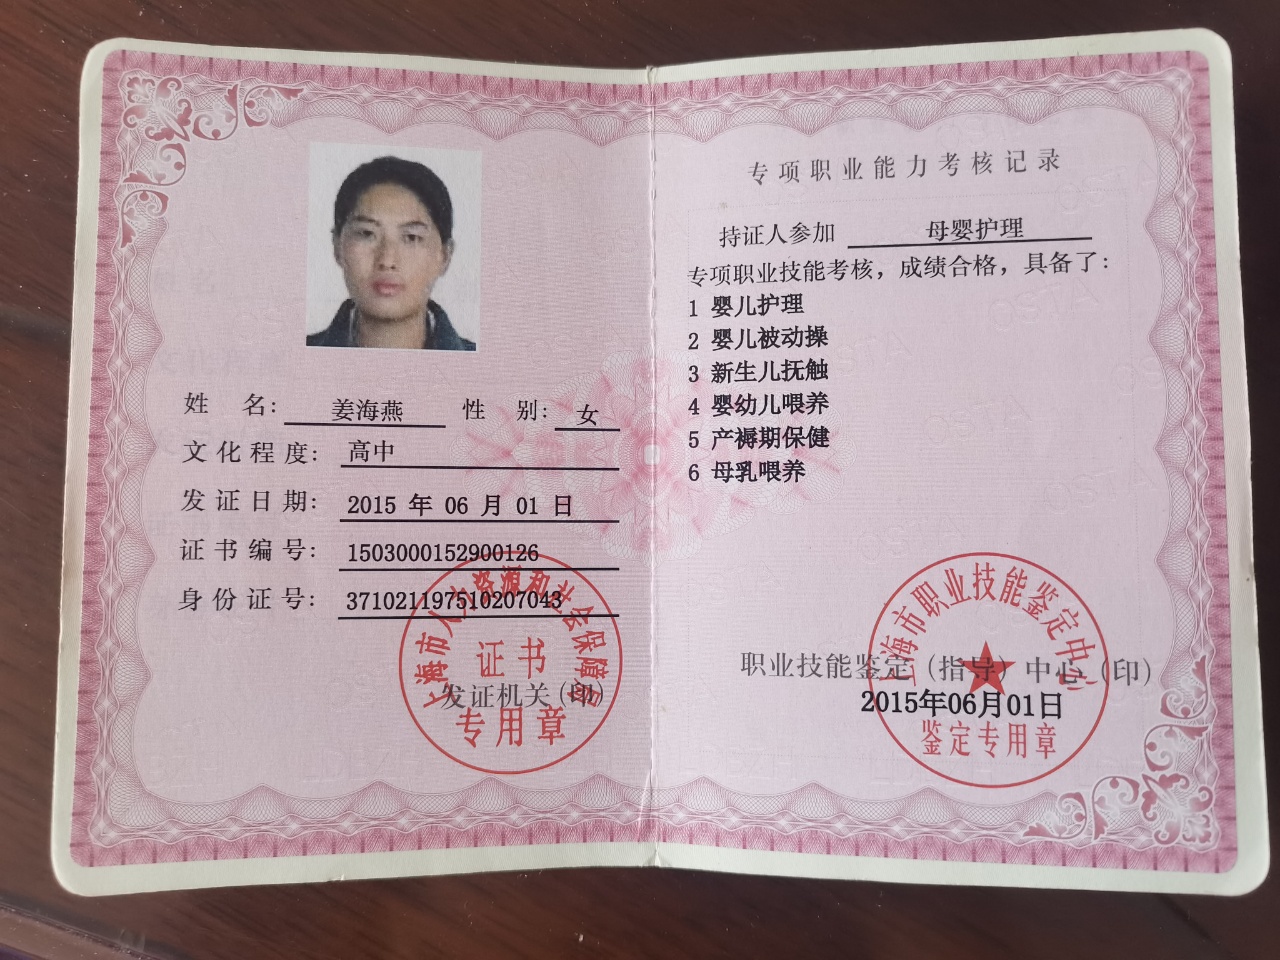 姓 名: 姜海燕 性 别: 女
文化程度: 高中
发证日期: 2015 年 06 月 01 日
证书编号: 1503000152900126
身份证号: 371021197510207043
上海市人力资源和社会保障局
证书
发证机关(印)
专用章
专项职业能力考核记录
持证人参加 母婴护理
专项职业技能考核，成绩合格，具备了：
1 婴儿护理
2 婴儿被动操
3 新生儿抚触
4 婴幼儿喂养
5 产褥期保健
6 母乳喂养
上海市职业技能鉴定中心
职业技能鉴定（指导）中心（印）
2015年06月01日
鉴定专用章